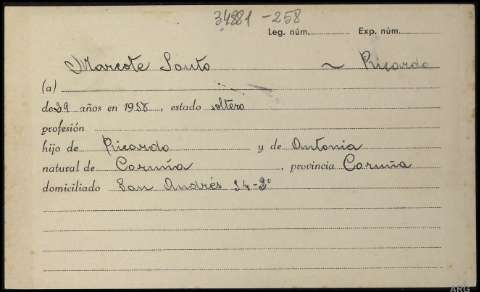 34881-258
Leg. núm. Exp. núm.
Marcote Souto ~ Ricardo
(a)
de 29 años en 1958, estado soltero
profesión
hijo de Ricardo y de Antonia
natural de Coruña, provincia Coruña
domiciliado San Andrés 24-2º
ARG